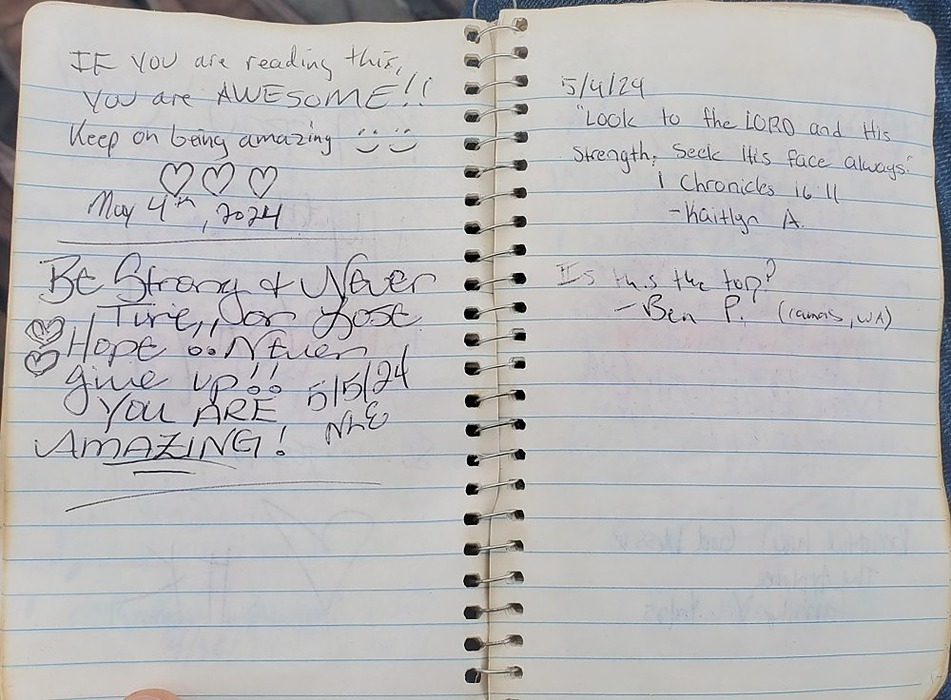 IF YOU are reading this,
YOU are AWESOME!!
Keep on being amazing
May 4th, 2024
BE Strong & Never
Tire,, or Lose
Hope ooNever
give up!!
5/5/24
YOU ARE
NLE
AMAZING!
5/4/24
"Look to the LORD and His
Strength; Seek His face always."
1 Chronicles 16:11
-Kaitlyn A.
Is this the top?
-Ben P. (camas, WA)